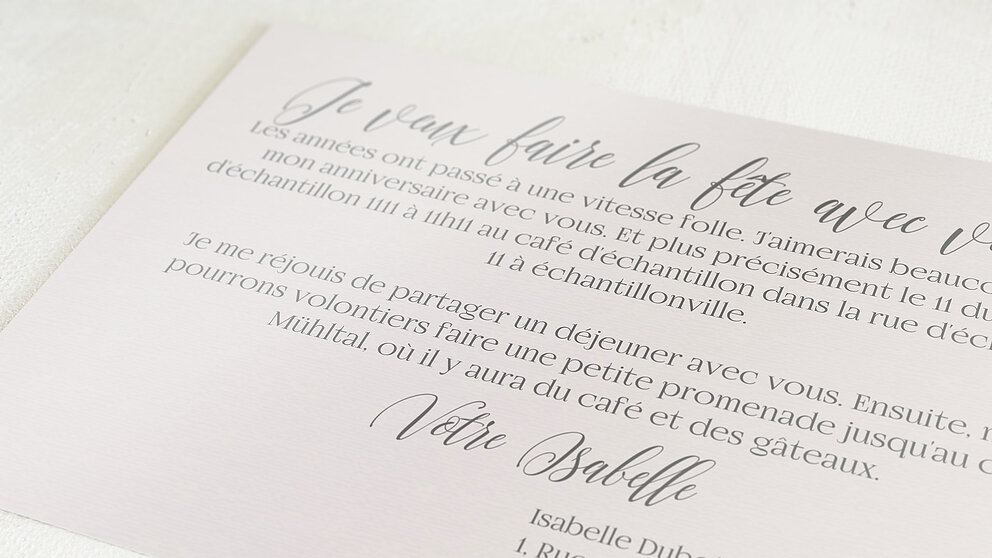 Je vaux faire la fête avec
Les années ont passé à une vitesse folle. J'aimerais
mon anniversaire avec vous. Et plus précisément le 11 du
d'échantillon 1111 à 11h11 au café d'échantillon dans la rue
11 à échantillonville.
Je me réjouis de partager un déjeuner avec vous. Ensuite,
pourrons volontiers faire une petite promenade jusqu'au
Mühltal, où il y aura du café et des gâteaux.
Votre Isabelle
Isabelle
1. Rue